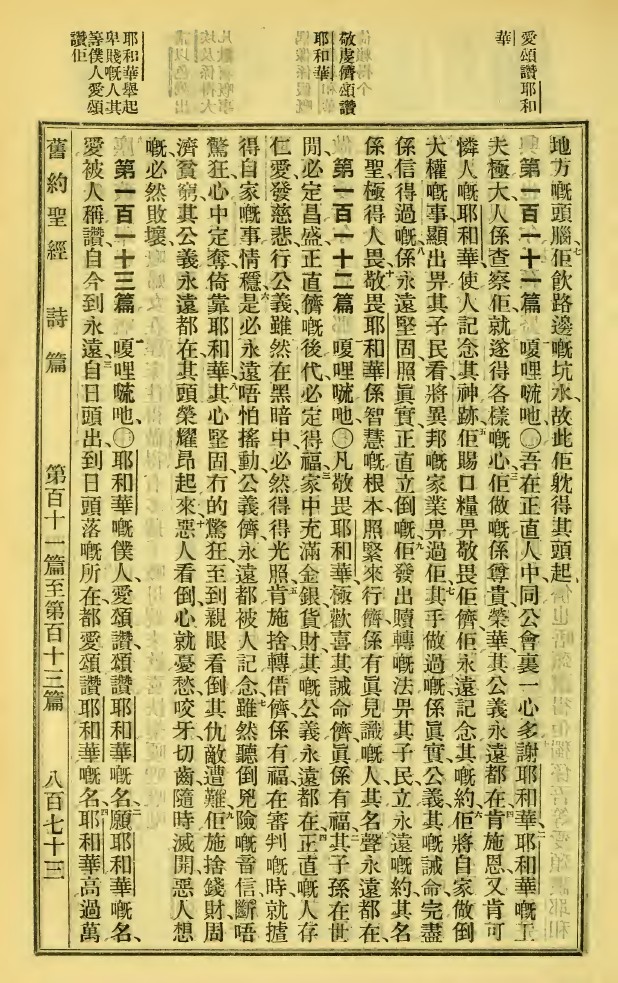 愛頌讚耶和
華
敬虔儕頌讚
耶和華
耶和華舉起
卑賤嘅人其
等僕人愛頌
讚佢
地方嘅頭腦、佢飲路邊嘅坑水、故此佢躭得其頭起、
第一百一十一篇 嗄哩㖇吔〇吾在正直人中、同公會裏一心多謝耶和華、耶和華嘅工
夫極大、人係查察佢就遂得各樣嘅心、佢做嘅係尊貴榮華、其公義永遠都在、肯施恩又肯可
憐人嘅耶和華、使人記念其神跡、佢賜口糧畀敬畏佢儕、佢永遠記念其嘅約、佢將自家做倒
大權嘅事、顯出畀其子民看、將異邦嘅家業畀過佢、其手做過嘅係眞實公義、其嘅誡命完盡
係信得過嘅、係永遠堅固、照眞實正直立倒嘅、佢發出贖轉嘅法畀其子民、立永遠嘅約、其名
係聖、極得人畏敬、畏耶和華係智慧嘅根本、照緊來行儕、係有眞見識嘅人、其名聲永遠都在、
第一百一十二篇 嗄哩㖇吔〇凡敬畏耶和華、極歡喜其誡命儕、眞係有福、其子孫在世
間必定昌盛、正直儕嘅後代必定得福、家中充滿金銀貨財、其嘅公義永遠都在、正直嘅人、存
仁愛、發慈悲、行公義、雖然在黑暗中、必然得得光照、肯施捨轉借儕係有福、在審判嘅時就揸
得自家嘅事情穩、是必永遠唔怕搖動、公義儕永遠都被人記念、雖然聽倒兇險嘅音信、斷唔
驚狂、心中定奪倚靠耶和華、其心堅固冇的驚狂、至到親眼看倒其仇敵遭難、佢施捨錢財周
濟貧窮、其公義永遠都在、其頭榮耀昂起來、惡人看倒、心就憂愁、咬牙切齒、隨時滅開、惡人想
嘅必然敗壞、
第一百一十三篇 嗄哩㖇吔〇耶和華嘅僕人、愛頌讚、頌讚耶和華嘅名、願耶和華嘅名、
愛被人稱讚、自今到永遠、自日頭出、到日頭落嘅所在、都愛頌讚耶和華嘅名、耶和華高過萬
舊約聖經 詩篇 第百十一篇至第百十三篇 八百七十三